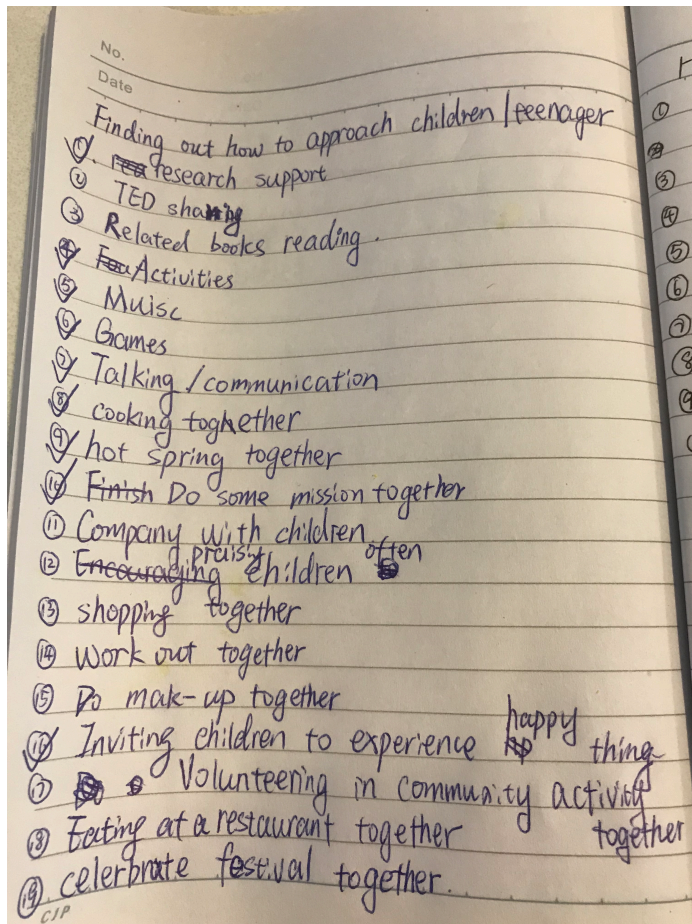 No.
Date
Finding out how to approach children / teenager
①. research support
② TED sharing
③ Related books reading.
④ Activities
⑤ Muisc
⑥ Games
⑦ Talking / communication
⑧ cooking toghether
⑨ hot spring together
⑩ Finish Do some mission together
⑪ Company with children
⑫ Encouraging praising children often
⑬ shopping together
⑭ Work out together
⑮ Do make-up together
⑯ Inviting children to experience happy thing
⑰ Volunteering in community activity together
⑱ Eating at a restaurant together
⑲. celerbrate festival together.
CJP
①
③
④
⑤
⑥
⑦
⑧
⑨